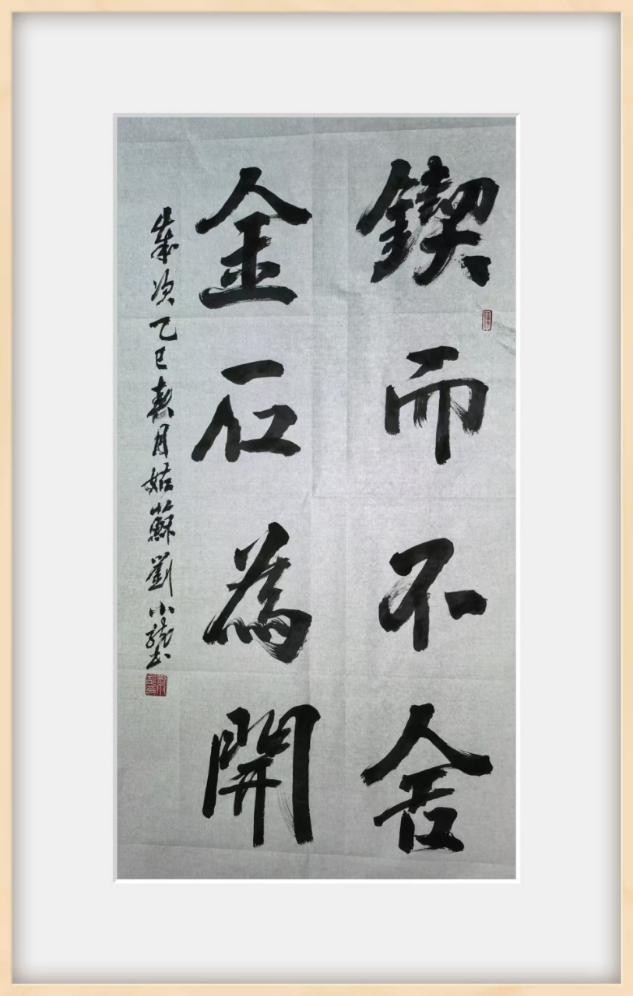 鍥而不舍
金石為開
歲次乙巳春月姑蘇劉小龍書